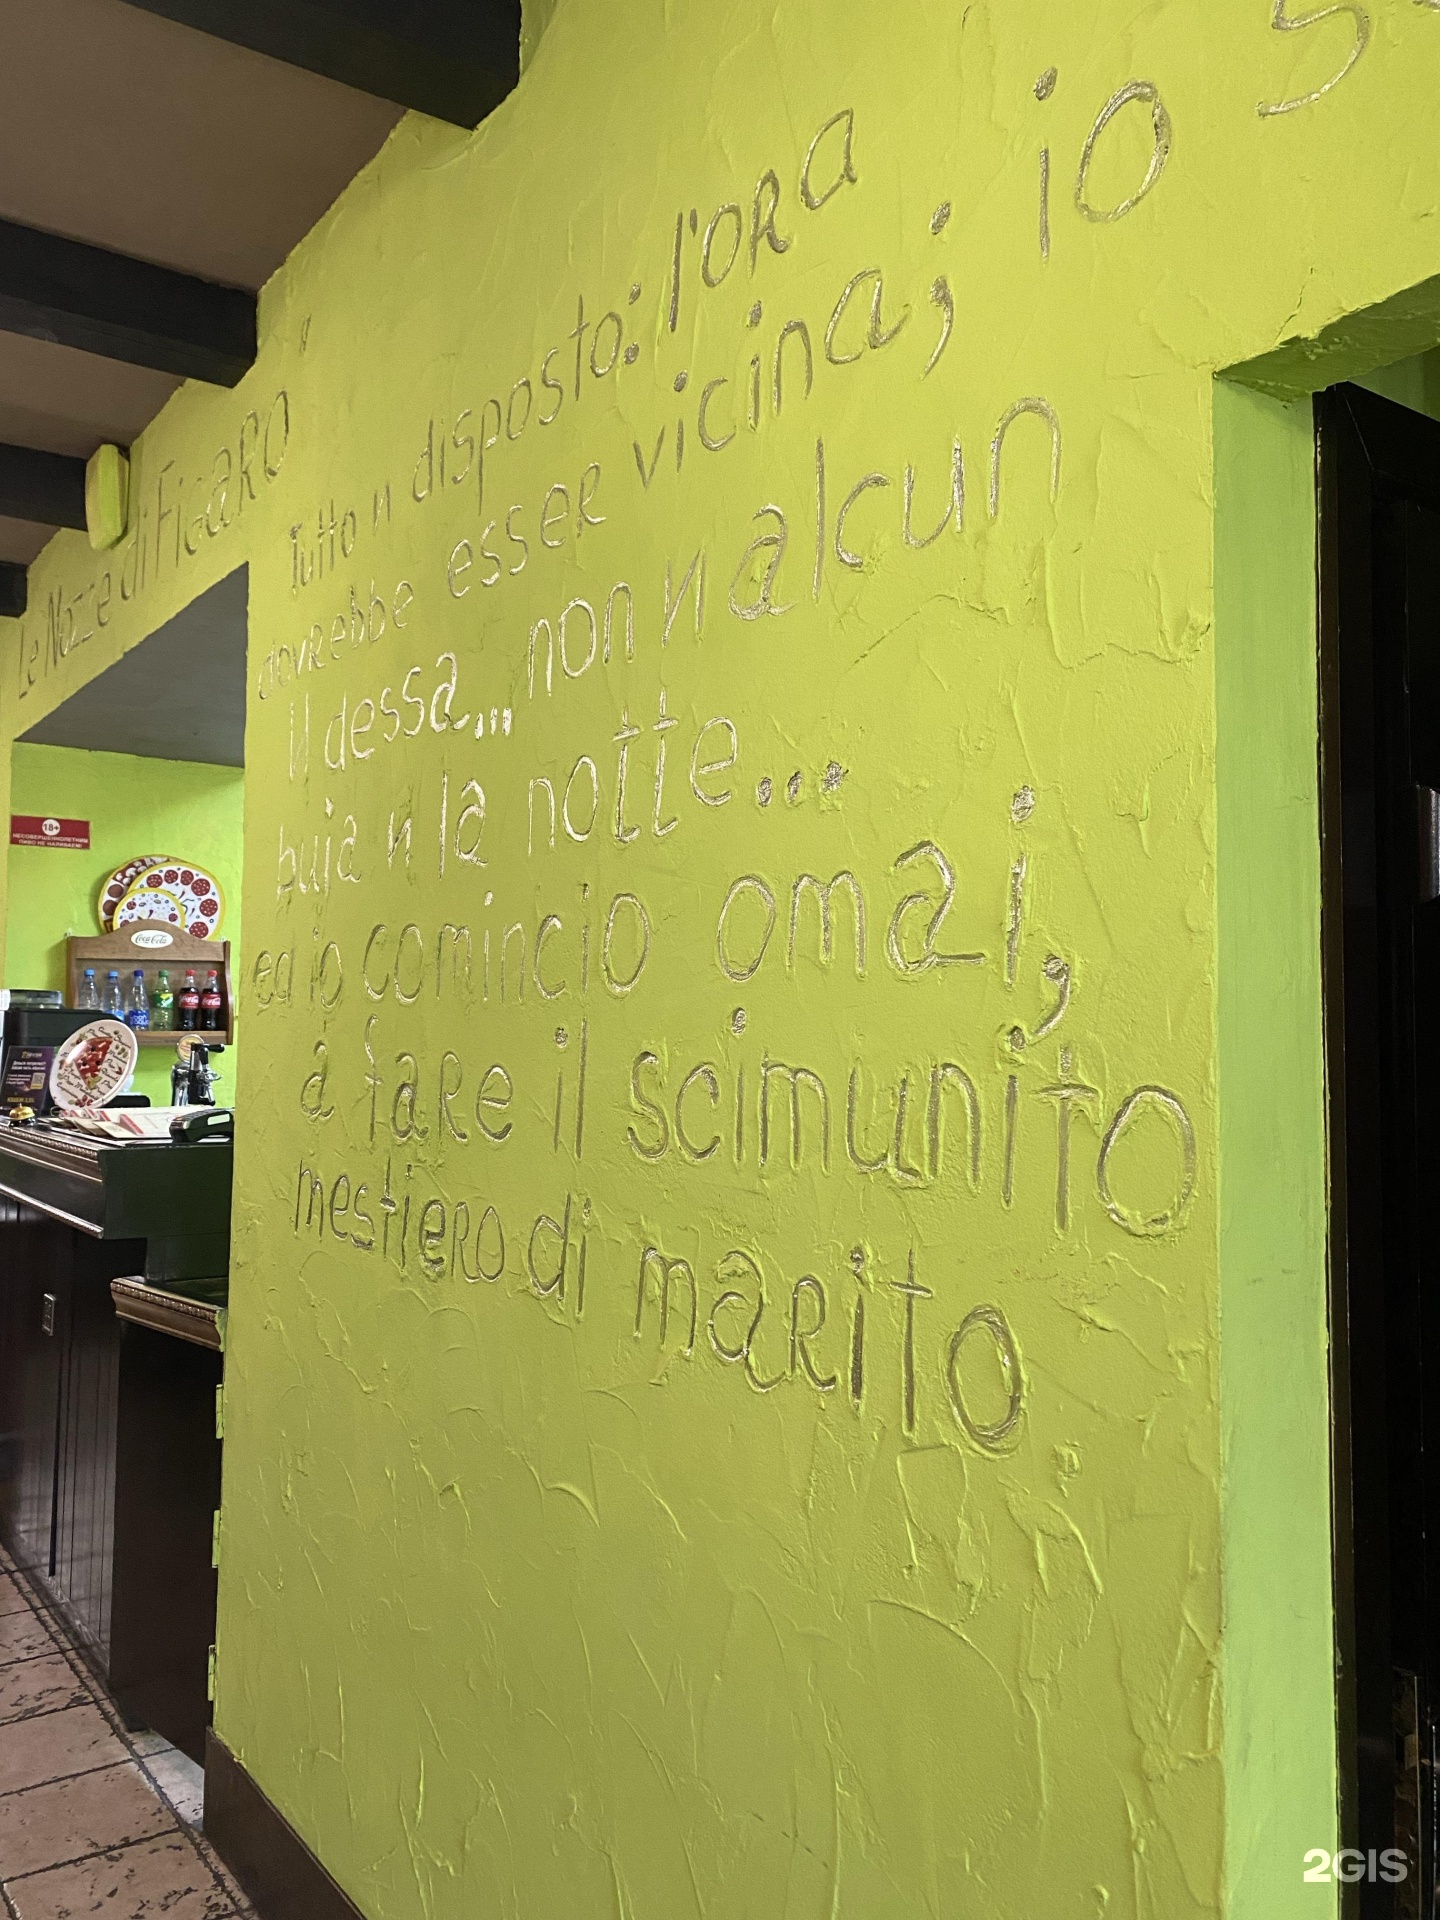 Le Nozze di FiGARO"
Tutto и disposto: l'ORa
dovRebbe esseR vicina; io s
и dessa... non и alcun
buja и la notte...
ed io comincio omai,
a faRe il scimunito
mestieRo di maRito.
18+
НЕСОВЕРШЕННОЛЕТНИМ
ПИВО НЕ НАЛИВАЕМ!
Coca-Cola
2GIS